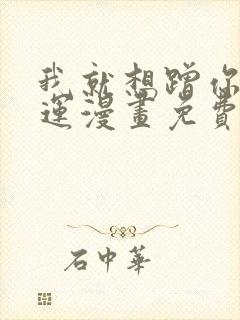 我就想蹭你
運漫畫免費
石中華